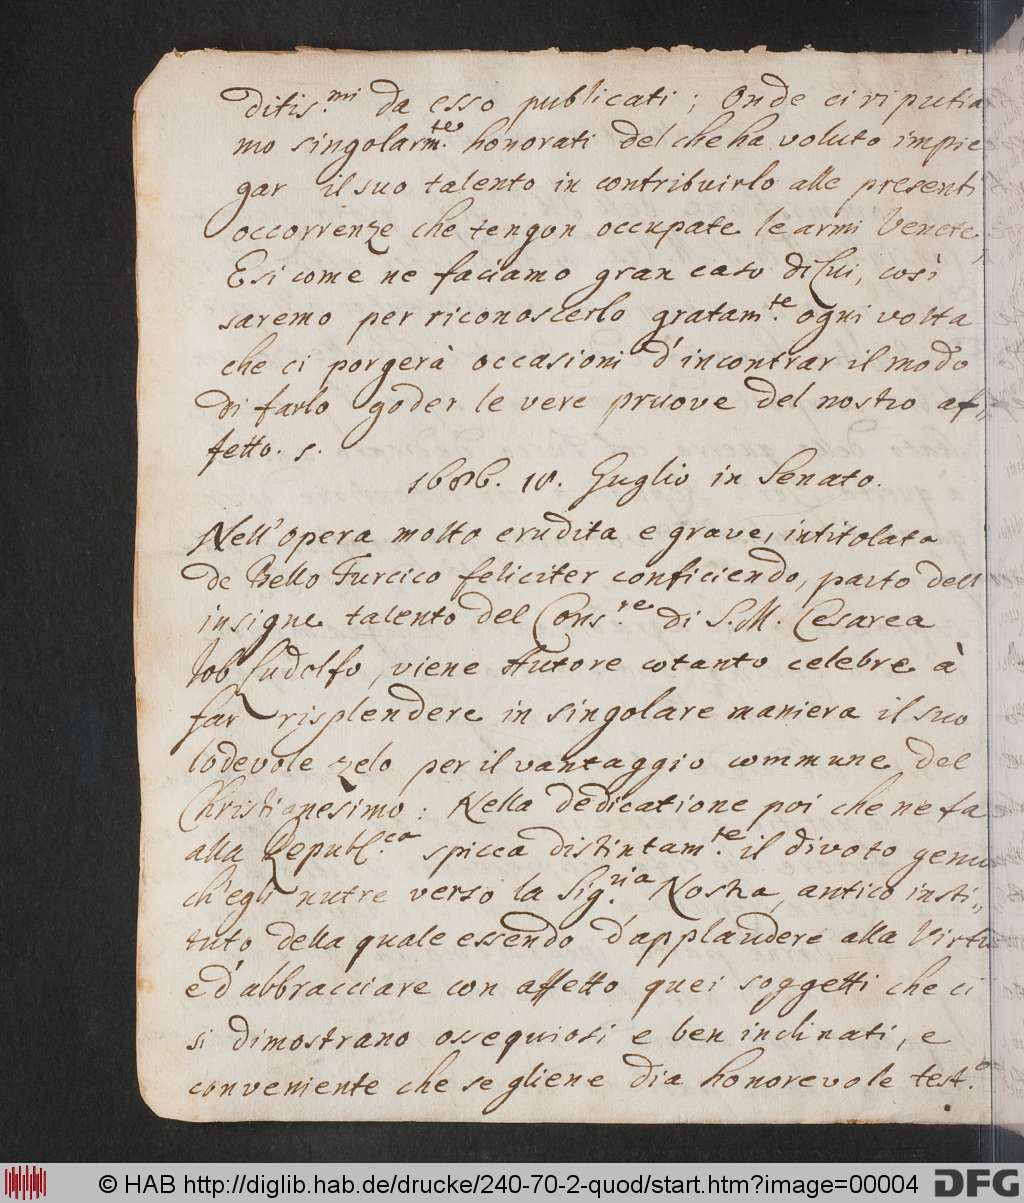 ditis.mi da esso publicati; Onde ci riputia
mo singolarm.te honorati del che ha voluto impie
gar il suo talento in contribuirlo alle presenti
occorrenze che tengon occupate le armi Venete,
E si come ne facciamo gran caso di Lui, così
saremo per riconoscerlo gratam.te ogni volta
che ci porgerà occasioni d'incontrar il modo
di farlo goder le vere pruove del nostro af„
fetto. s.
1686. 18. Guglio in Senato.
Nell'opera molto erudita e grave, intitolata
de Bello Turcico feliciter conficiendo, parto dell
insigne talento del Cons.re di S. M. Cesarea
Job Ludolfo, viene Autore cotanto celebre à
far risplendere in singolare maniera il suo
lodevole zelo per il vantaggio commune del
Christianesimo: Nella dedicatione poi che ne fa
alla Republ.ca spicca distintam.te il divoto genio
ch'egli nutre verso la Sig.ria Nostra, antico insti„
tuto della quale essendo d'applaudere alla Virtu
e d'abbracciare con affetto quei soggetti che ci
si dimostrano ossequiosi e ben inclinati, e
conveniente che se gliene dia honorevole test.o
© HAB http://diglib.hab.de/drucke/240-70-2-quod/start.htm?image=00004 DFG